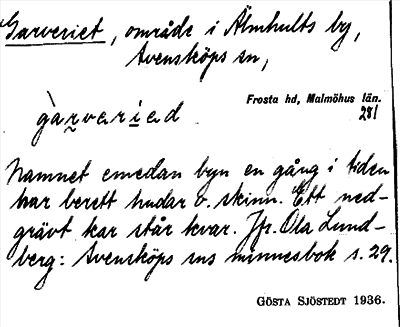 Garveriet, område i Älmhults by,
Svensköps sn,
Frosta hd, Malmöhus län.
281
gàrveríed
Namnet emedan byn en gång i tiden
har berett hudar o. skinn. Ett ned-
grävt kar står kvar. Jfr. Ola Lund-
berg: Svensköps sns minnesbok s. 29.
GÖSTA SJÖSTEDT 1936.